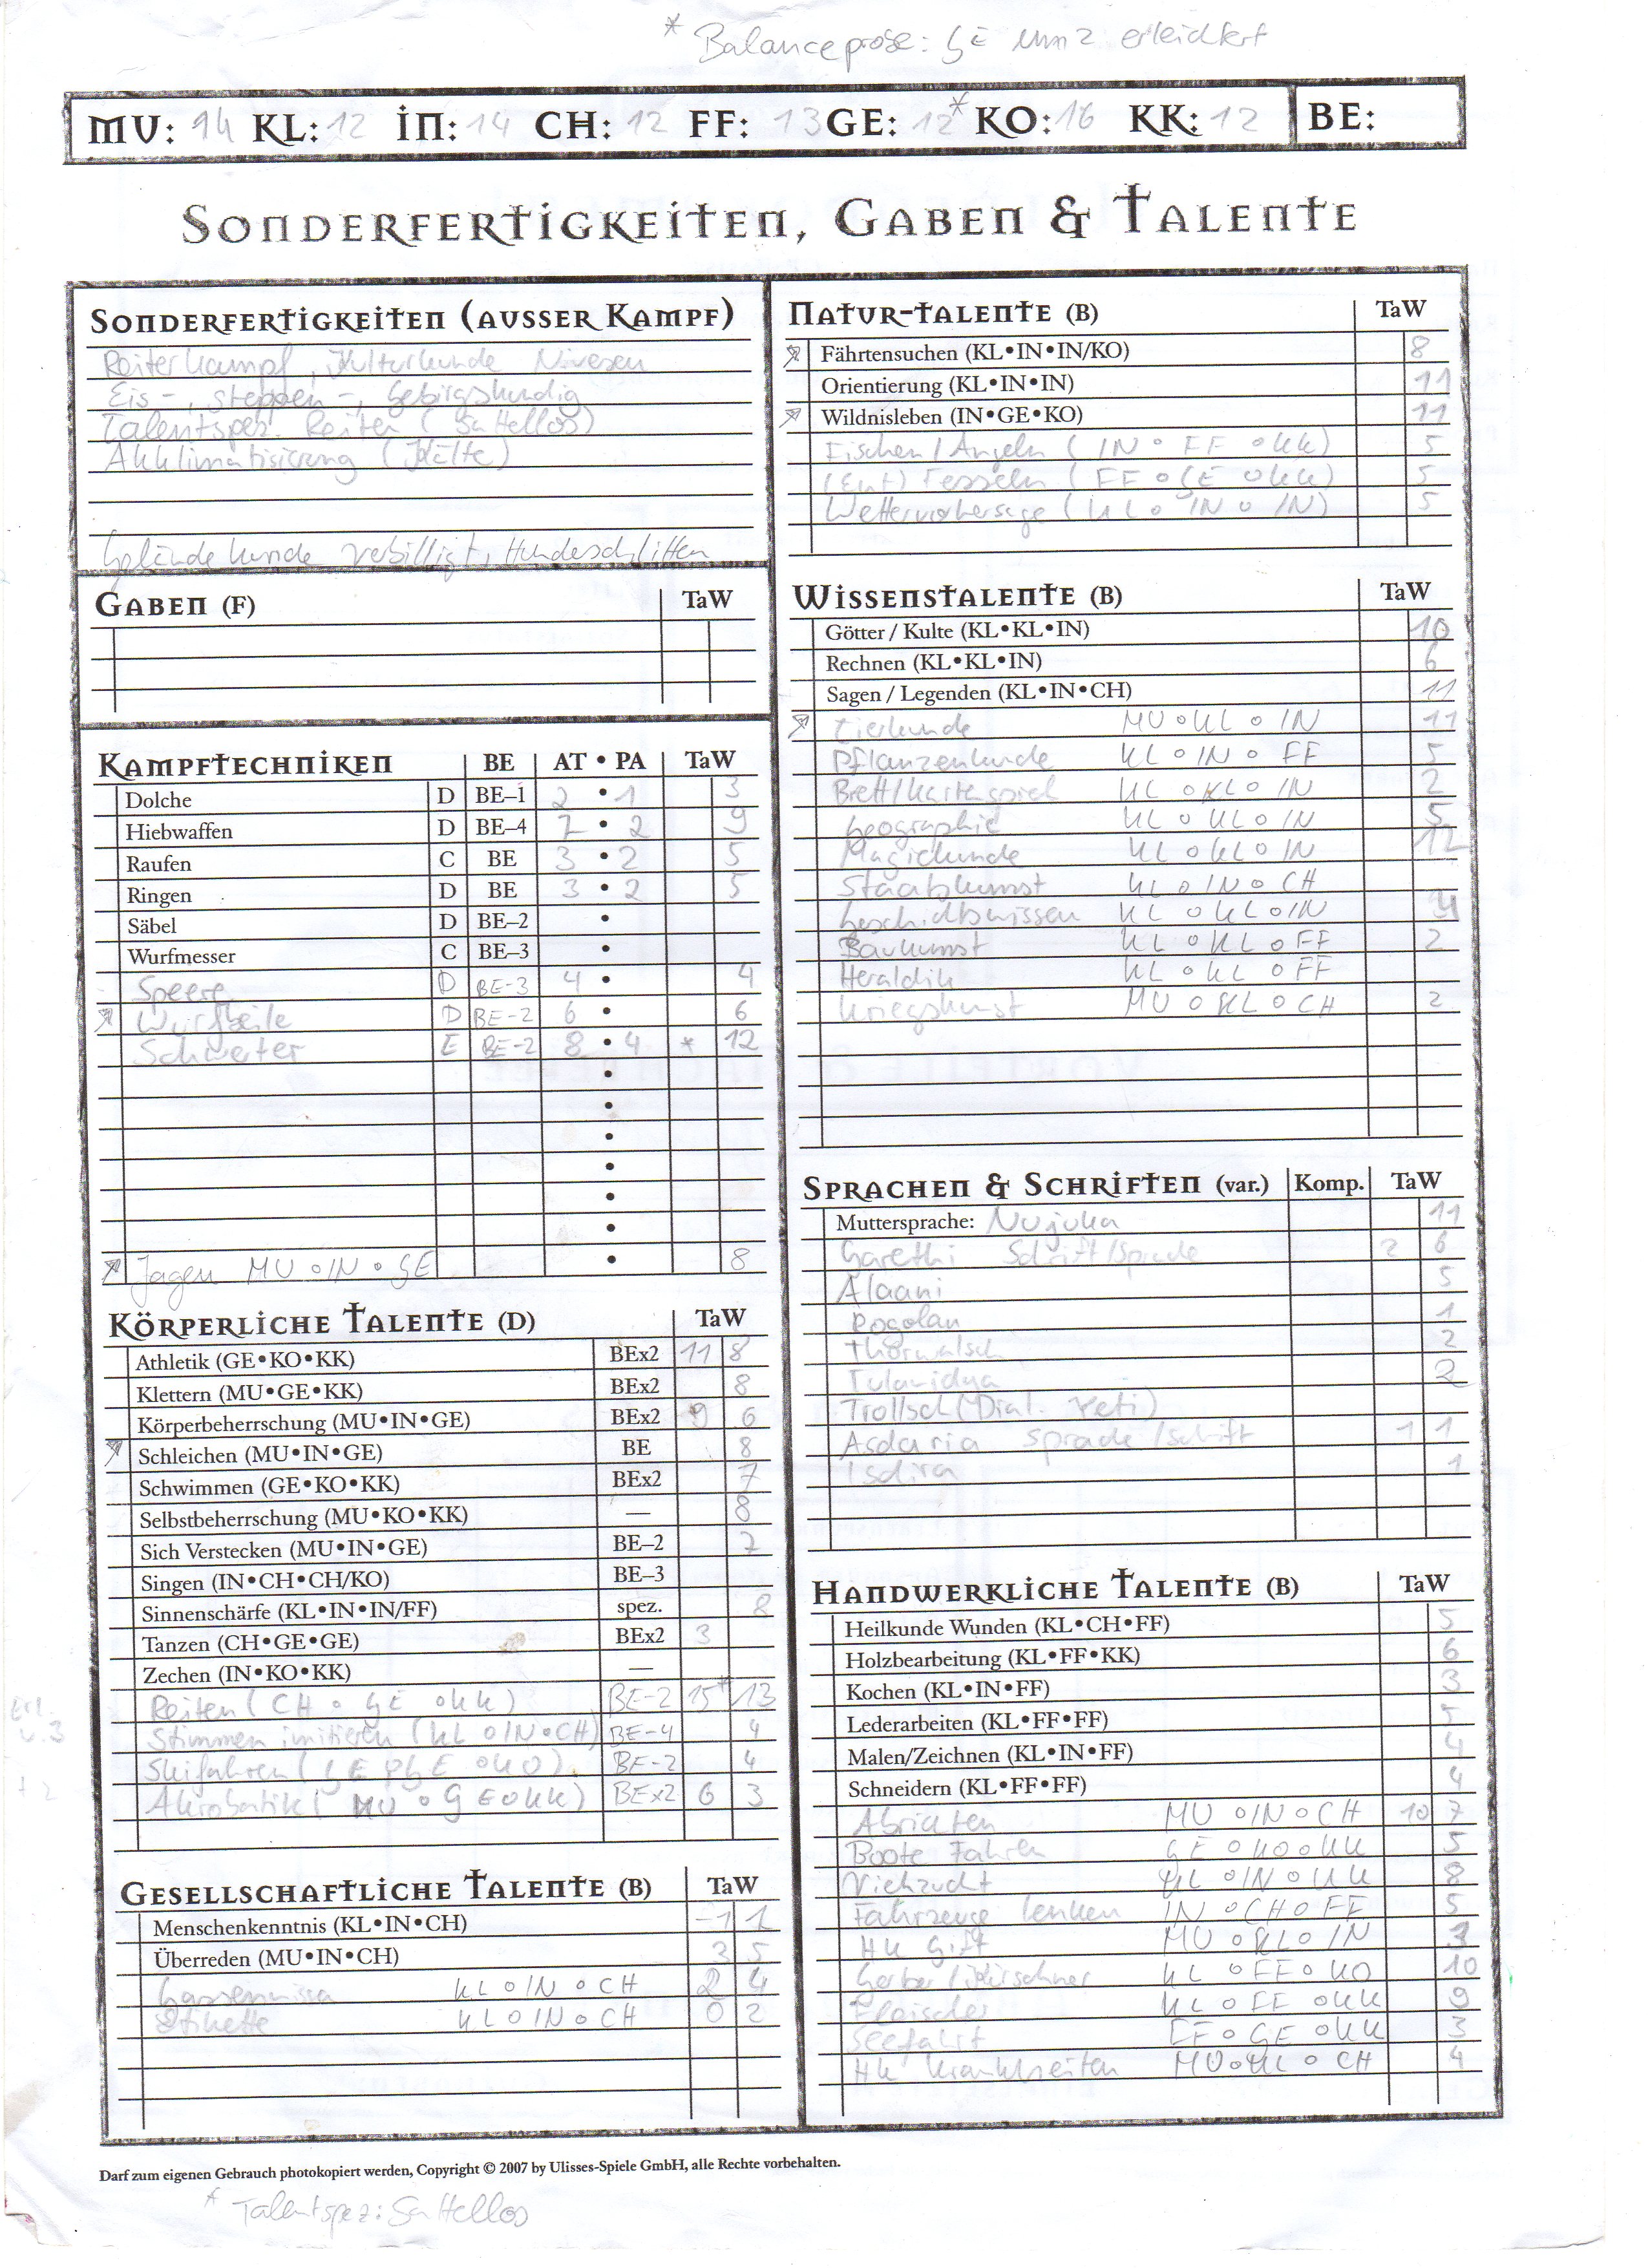 * Balanceprobe: GE um 2 erleichtert
MU: 14 KL: 12 IN: 14 CH: 12 FF: 13 GE: 12* KO: 16 KK: 12 BE:
Sonderfertigkeiten, Gaben & Talente
Sonderfertigkeiten (ausser Kampf)
Reiterkampf, Kulturkunde Nivesen
Eis-, Steppen-, Gebirgskundig
Talentspez. Reiten (Sattellos)
Akklimatisierung (Kälte)
Geländekunde verbilligt, Hundeschlitten
Gaben (F) TaW
Kampftechniken BE AT • PA TaW
Dolche D BE–1 2 • 1 3
Hiebwaffen D BE–4 7 • 2 9
Raufen C BE 3 • 2 5
Ringen D BE 3 • 2 5
Säbel D BE–2 •
Wurfmesser C BE–3 •
Speere D BE-3 4 • 4
Wurfbeile D BE-2 6 • 6
Schwerter E BE-2 8 • 4 * 12
Jagen MU o IN o GE • 8
Körperliche Talente (D) TaW
Athletik (GE•KO•KK) BEx2 11 8
Klettern (MU•GE•KK) BEx2 8
Körperbeherrschung (MU•IN•GE) BEx2 9 6
Schleichen (MU•IN•GE) BE 8
Schwimmen (GE•KO•KK) BEx2 7
Selbstbeherrschung (MU•KO•KK) — 8
Sich Verstecken (MU•IN•GE) BE–2 7
Singen (IN•CH•CH/KO) BE–3
Sinnenschärfe (KL•IN•IN/FF) spez. 8
Tanzen (CH•GE•GE) BEx2 3
Zechen (IN•KO•KK) —
Reiten (CH o GE o KK) BE-2 15* 13
Erl. v. 3
Stimmen imitieren (KL o IN o CH) BE-4 4
Skifahren (GE o GE o KO) BE-2 4
Akrobatik (MU o GE o KK) BEx2 6 3
Gesellschaftliche Talente (B) TaW
Menschenkenntnis (KL•IN•CH) -1 1
Überreden (MU•IN•CH) 3 5
Gassenwissen KL o IN o CH 2 4
Etikette KL o IN o CH 0 2
Natur-Talente (B) TaW
Fährtensuchen (KL•IN•IN/KO) 8
Orientierung (KL•IN•IN) 11
Wildnisleben (IN•GE•KO) 11
Fischen/Angeln (IN o FF o KK) 5
(Ent)Fesseln (FF o GE o KK) 5
Wettervorhersage (KL o IN o IN) 5
Wissenstalente (B) TaW
Götter / Kulte (KL•KL•IN) 10
Rechnen (KL•KL•IN) 6
Sagen / Legenden (KL•IN•CH) 11
Tierkunde MU o KL o IN 11
Pflanzenkunde KL o IN o FF 5
Brett/Kartenspiel KL o KL o IN 2
Geographie KL o KL o IN 5
Magiekunde KL o KL o IN 12
Staatskunst KL o IN o CH
Geschichtswissen KL o KL o IN 4
Baukunst KL o KL o FF 2
Heraldik KL o KL o FF
Kriegskunst MU o KL o CH 2
Sprachen & Schriften (var.) Komp. TaW
Muttersprache: Nujuka 11
Garethi Schrift/Sprache 2 6
Alaani 5
Rogolan 1
Thorwalsch 2
Tulamidya 2
Trollsch (Dial. Yeti)
Asdharia Sprache/Schrift 1 1
Isdira 1
Handwerkliche Talente (B) TaW
Heilkunde Wunden (KL•CH•FF) 5
Holzbearbeitung (KL•FF•KK) 6
Kochen (KL•IN•FF) 3
Lederarbeiten (KL•FF•FF) 5
Malen/Zeichnen (KL•IN•FF) 4
Schneidern (KL•FF•FF) 4
Abrichten MU o IN o CH 10 7
Boote Fahren GE o KO o KK 5
Viehzucht KL o IN o KK 8
Fahrzeuge lenken IN o CH o FF 5
HK Gift MU o KL o IN 3
Gerber/Kürschner KL o FF o KO 10
Fleischer KL o FF o KK 9
Seefahrt FF o GE o KK 3
HK Krankheiten MU o KL o CH 4
Darf zum eigenen Gebrauch photokopiert werden, Copyright © 2007 by Ulisses-Spiele GmbH, alle Rechte vorbehalten.
* Talentspez: Sattellos